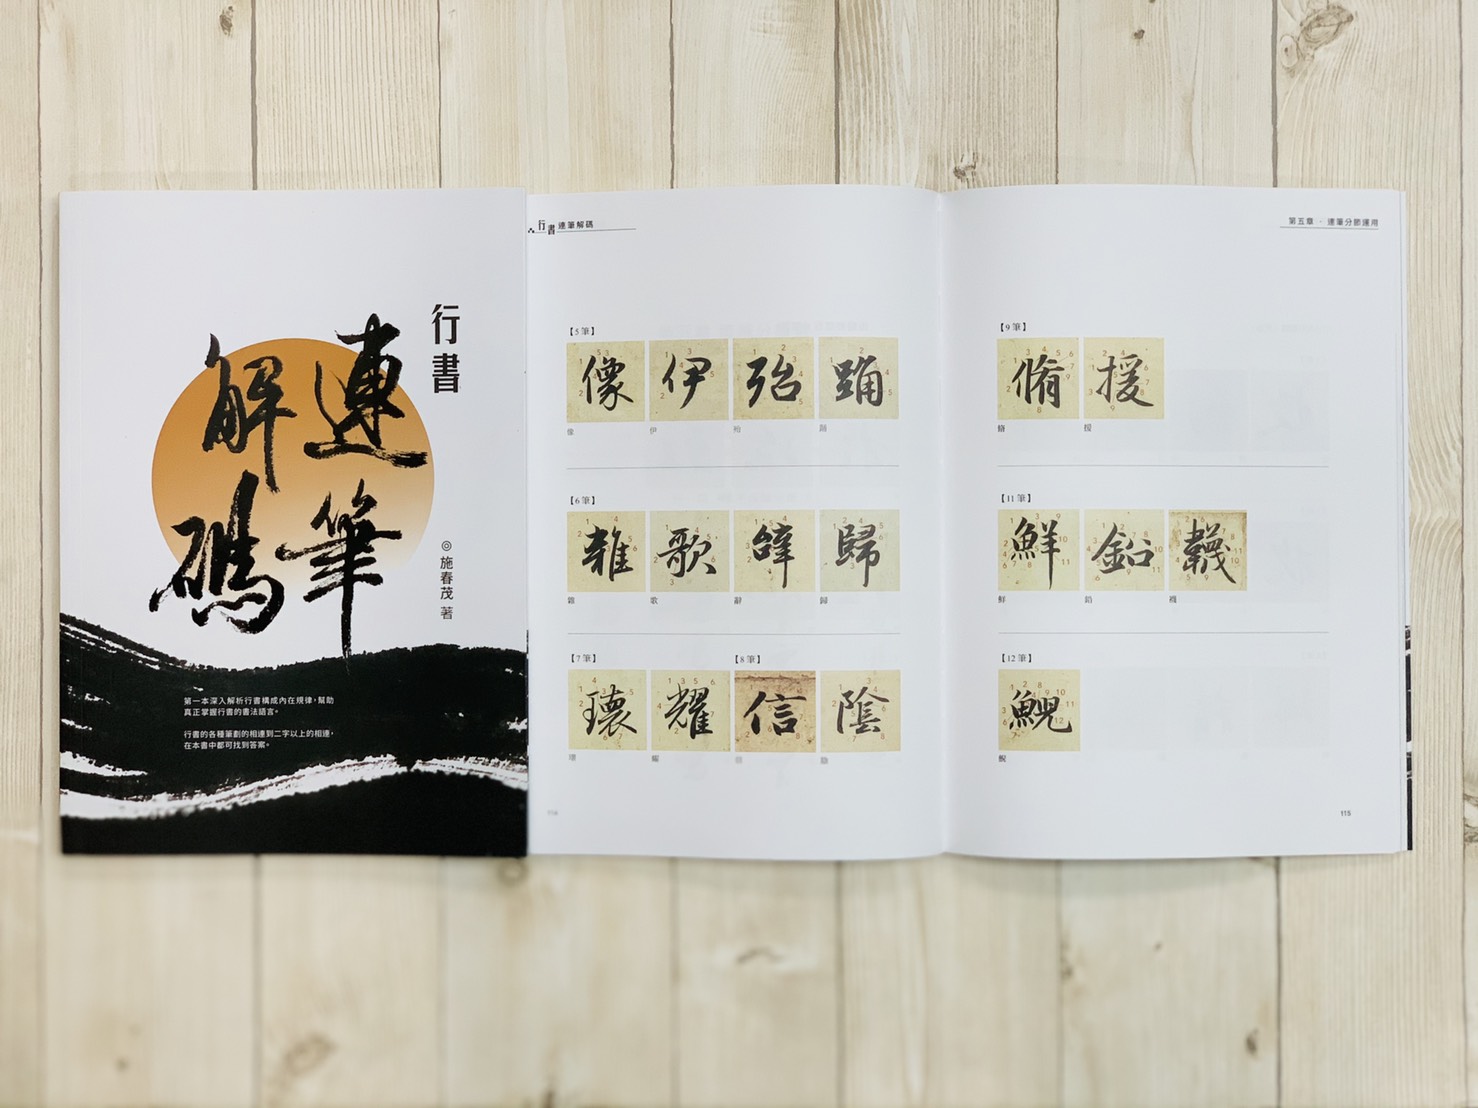 行書
連筆
解碼
◎施春茂 著
第一本深入解析行書構成內在規律，幫助
真正掌握行書的書法語言。
行書的各種筆劃的相連到二字以上的相連，
在本書中都可找到答案。
行書 連筆解碼
【5 筆】
像 伊 殆 踊
像 伊 殆 踊
【6 筆】
雜 歌 辭 歸
雜 歌 辭 歸
【7 筆】 【8 筆】
壞 耀 信 陰
壞 耀 信 陰
114
第五章 · 連筆分節運用
【9 筆】
脩 援
脩 援
【11 筆】
鮮 鉛 襪
鮮 鉛
【12 筆】
鯢
鯢
115